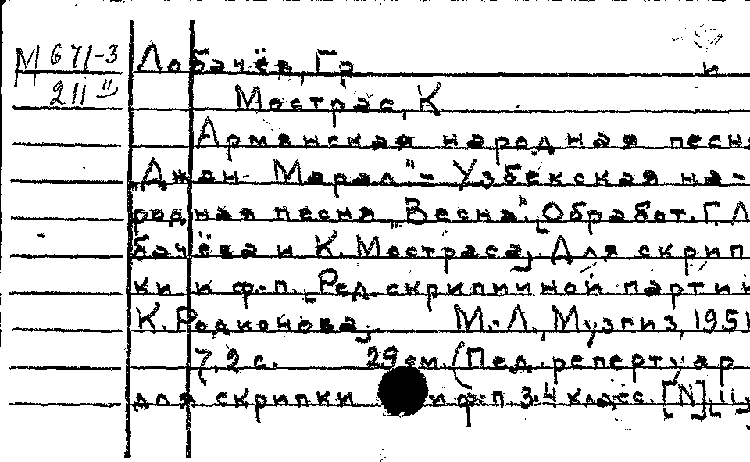 М 671-3 Лобачёв, Гр. и
211 Мострас, К
Армянская народная песня
„Джан-Марал"– Узбекская на-
родная песня „Весна". [Обработ. Г. Ло
бачёва и К. Мостраса]. Для скрип
ки и ф.-п. [Ред. скрипичной партии
К. Родионова]. М.-Л., Музгиз, 1951
7, 2 с. 29 см. (Пед. репертуар
для скрипки и ф.-п 3-4 класс. [N] 11,